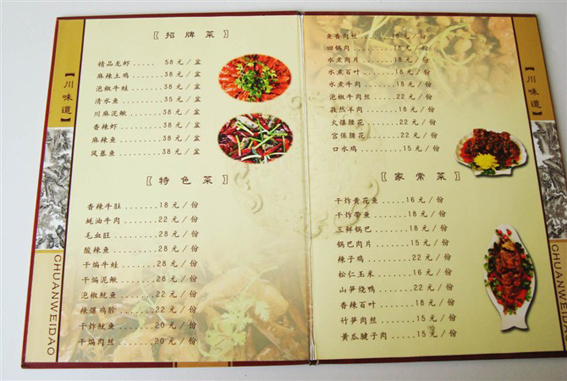 【川味道】
CHUANWEIDAO
〖招牌菜〗
精品龙虾 ..... 58元/盆
麻辣土鸡 ..... 38元/盆
泡椒牛蛙 ..... 38元/盆
清水鱼 ....... 38元/盆
川麻泥鳅 ..... 38元/盆
香辣虾 ....... 38元/盆
麻辣鱼 ....... 38元/盆
凤基鱼 ....... 38元/盆
〖特色菜〗
香辣牛肚 ....... 18元/份
蚝油牛肉 ....... 22元/份
毛血旺 ......... 28元/份
酸辣鱼 ......... 28元/份
干煸牛蛙 ....... 28元/份
干煸泥鳅 ....... 28元/份
泡椒鱿鱼 ....... 22元/份
辣爆鸡胗 ....... 22元/份
干炸鱿鱼 ....... 20元/份
干煸肉丝 ....... 20元/份
鱼香肉丝 ..... 15元/份
回锅肉 ....... 18元/份
水煮肉片 ..... 18元/份
水煮百叶 ..... 18元/份
水煮牛肉 ..... 18元/份
泡椒牛肉丝 ... 22元/份
孜然羊肉 ..... 22元/份
火爆腰花 ..... 22元/份
宫保腰花 ..... 22元/份
口水鸡 ....... 15元/份
〖家常菜〗
干炸黄花鱼 ..... 16元/份
干炸带鱼 ....... 18元/份
三鲜锅巴 ....... 18元/份
锅巴肉片 ....... 15元/份
辣子鸡 ......... 22元/份
松仁玉米 ....... 16元/份
山笋烧鸭 ....... 22元/份
香辣百叶 ....... 18元/份
竹笋肉丝 ....... 15元/份
黄瓜腱子肉 ..... 15元/份
【川味道】
CHUANWEIDAO